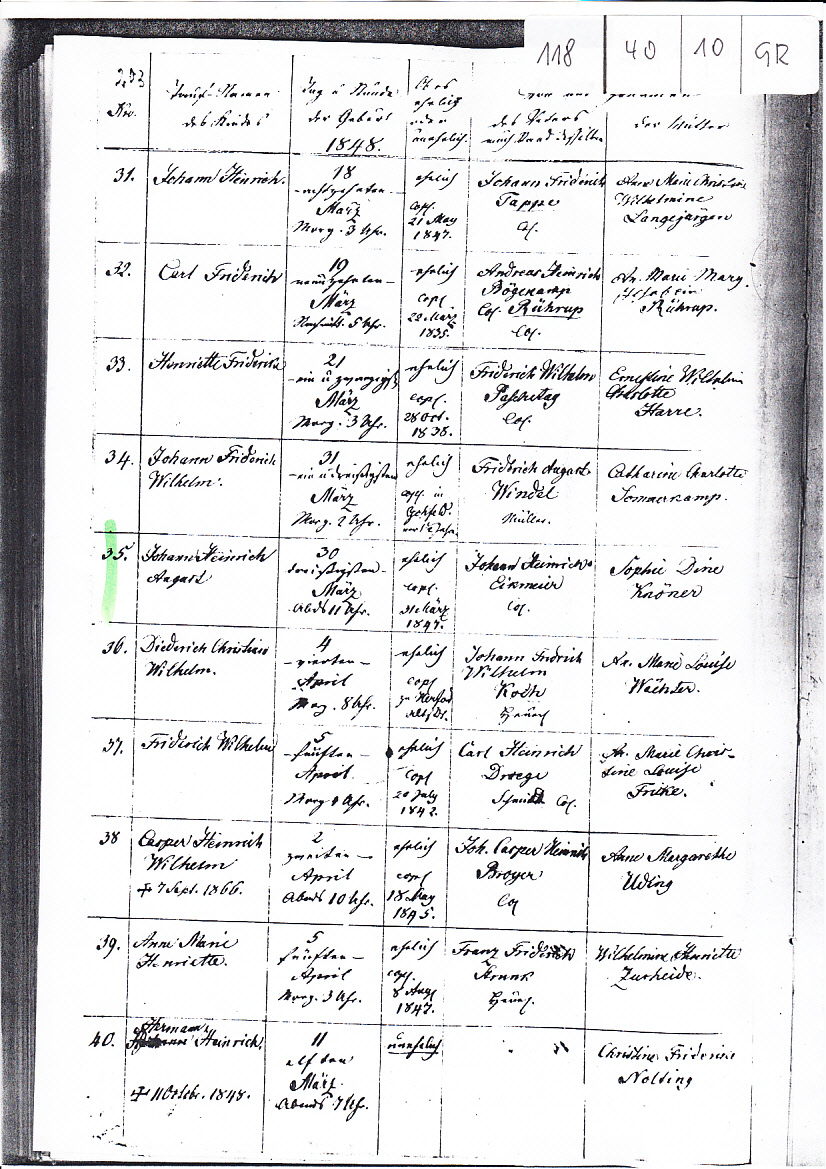 118 40 10 GR
233
No.
Tauf-Namen
des Kindes
Tag u Stunde
der Geburt
1848.
Ob es
ehelich
oder
unehelich.
des Vaters
nach Stand desselben
der Mutter
31.
Johann Heinrich.
18
achtzehnten
März
Morg. 3 Uhr.
ehelich
cop.
21 May
1847.
Johann Friderich
Tappe
Col.
Ane Marie Christine
Wilhelmine
Langejürgen
32.
Carl Friderich
19
neunzehnten
März
Nachmitt. 5 Uhr.
ehelich
copl
22 März
1835.
Andreas Heinrich
Bögekamp
Col. Rührup
Col.
An. Marie Marg.
Rührup.
33.
Henriette Friderike
21
ein u zwanzigst
März
Morg. 3 Uhr.
ehelich
copl.
28 Oct.
1838.
Friderich Wilhelm
Paschetag
Col.
Ernestine Wilhelmine
Charlotte
Harre.
34.
Johann Friderich
Wilhelm.
31
ein u dreißigsten
März
Morg. 2 Uhr.
ehelich
cop. in
Friderich August
Windel
Müller.
Catharine Charlotte
Sommerkamp.
35.
Johann Heinrich
August
30
dreißigsten
März
Abds 11 Uhr.
ehelich
copl.
31 März
1847.
Johann Heinrich
Eikmeier
Col.
Sophie Dine
Knöner
36.
Diederich Christian
Wilhelm.
4
vierten
April
Morg. 8 Uhr.
ehelich
copl
zu Herford
Johann Fridrich
Wilhelm
Koch
Heuerl
An. Marie Louise
Wächter.
37.
Friderich Wilhelm
5
fünften
April
Morg Uhr.
ehelich
copl
20 July
1842.
Carl Heinrich
Droege
Schmidt Col.
An. Marie Chris-
tine Louise
Fricke.
38
Casper Heinrich
Wilhelm
+ 7 Sept. 1866.
2
zweiten
April
Abends 10 Uhr.
ehelich
copl
18 May
1845.
Joh. Casper Heinrich
Broyer
Col
Anne Margarethe
Uding
39.
Anne Marie
Henriette.
5
fünften
April
Morg. 3 Uhr.
ehelich
cop.
8 Aug
1847.
Franz Friderich
Krunk
Heuerl.
Wilhelmine Henriette
Zurheide.
40.
Hermann
Heinrich.
+ 11 Octobr. 1848.
11
elften
März.
Abends 7 Uhr.
unehelich
Christine Friderike
Nolting